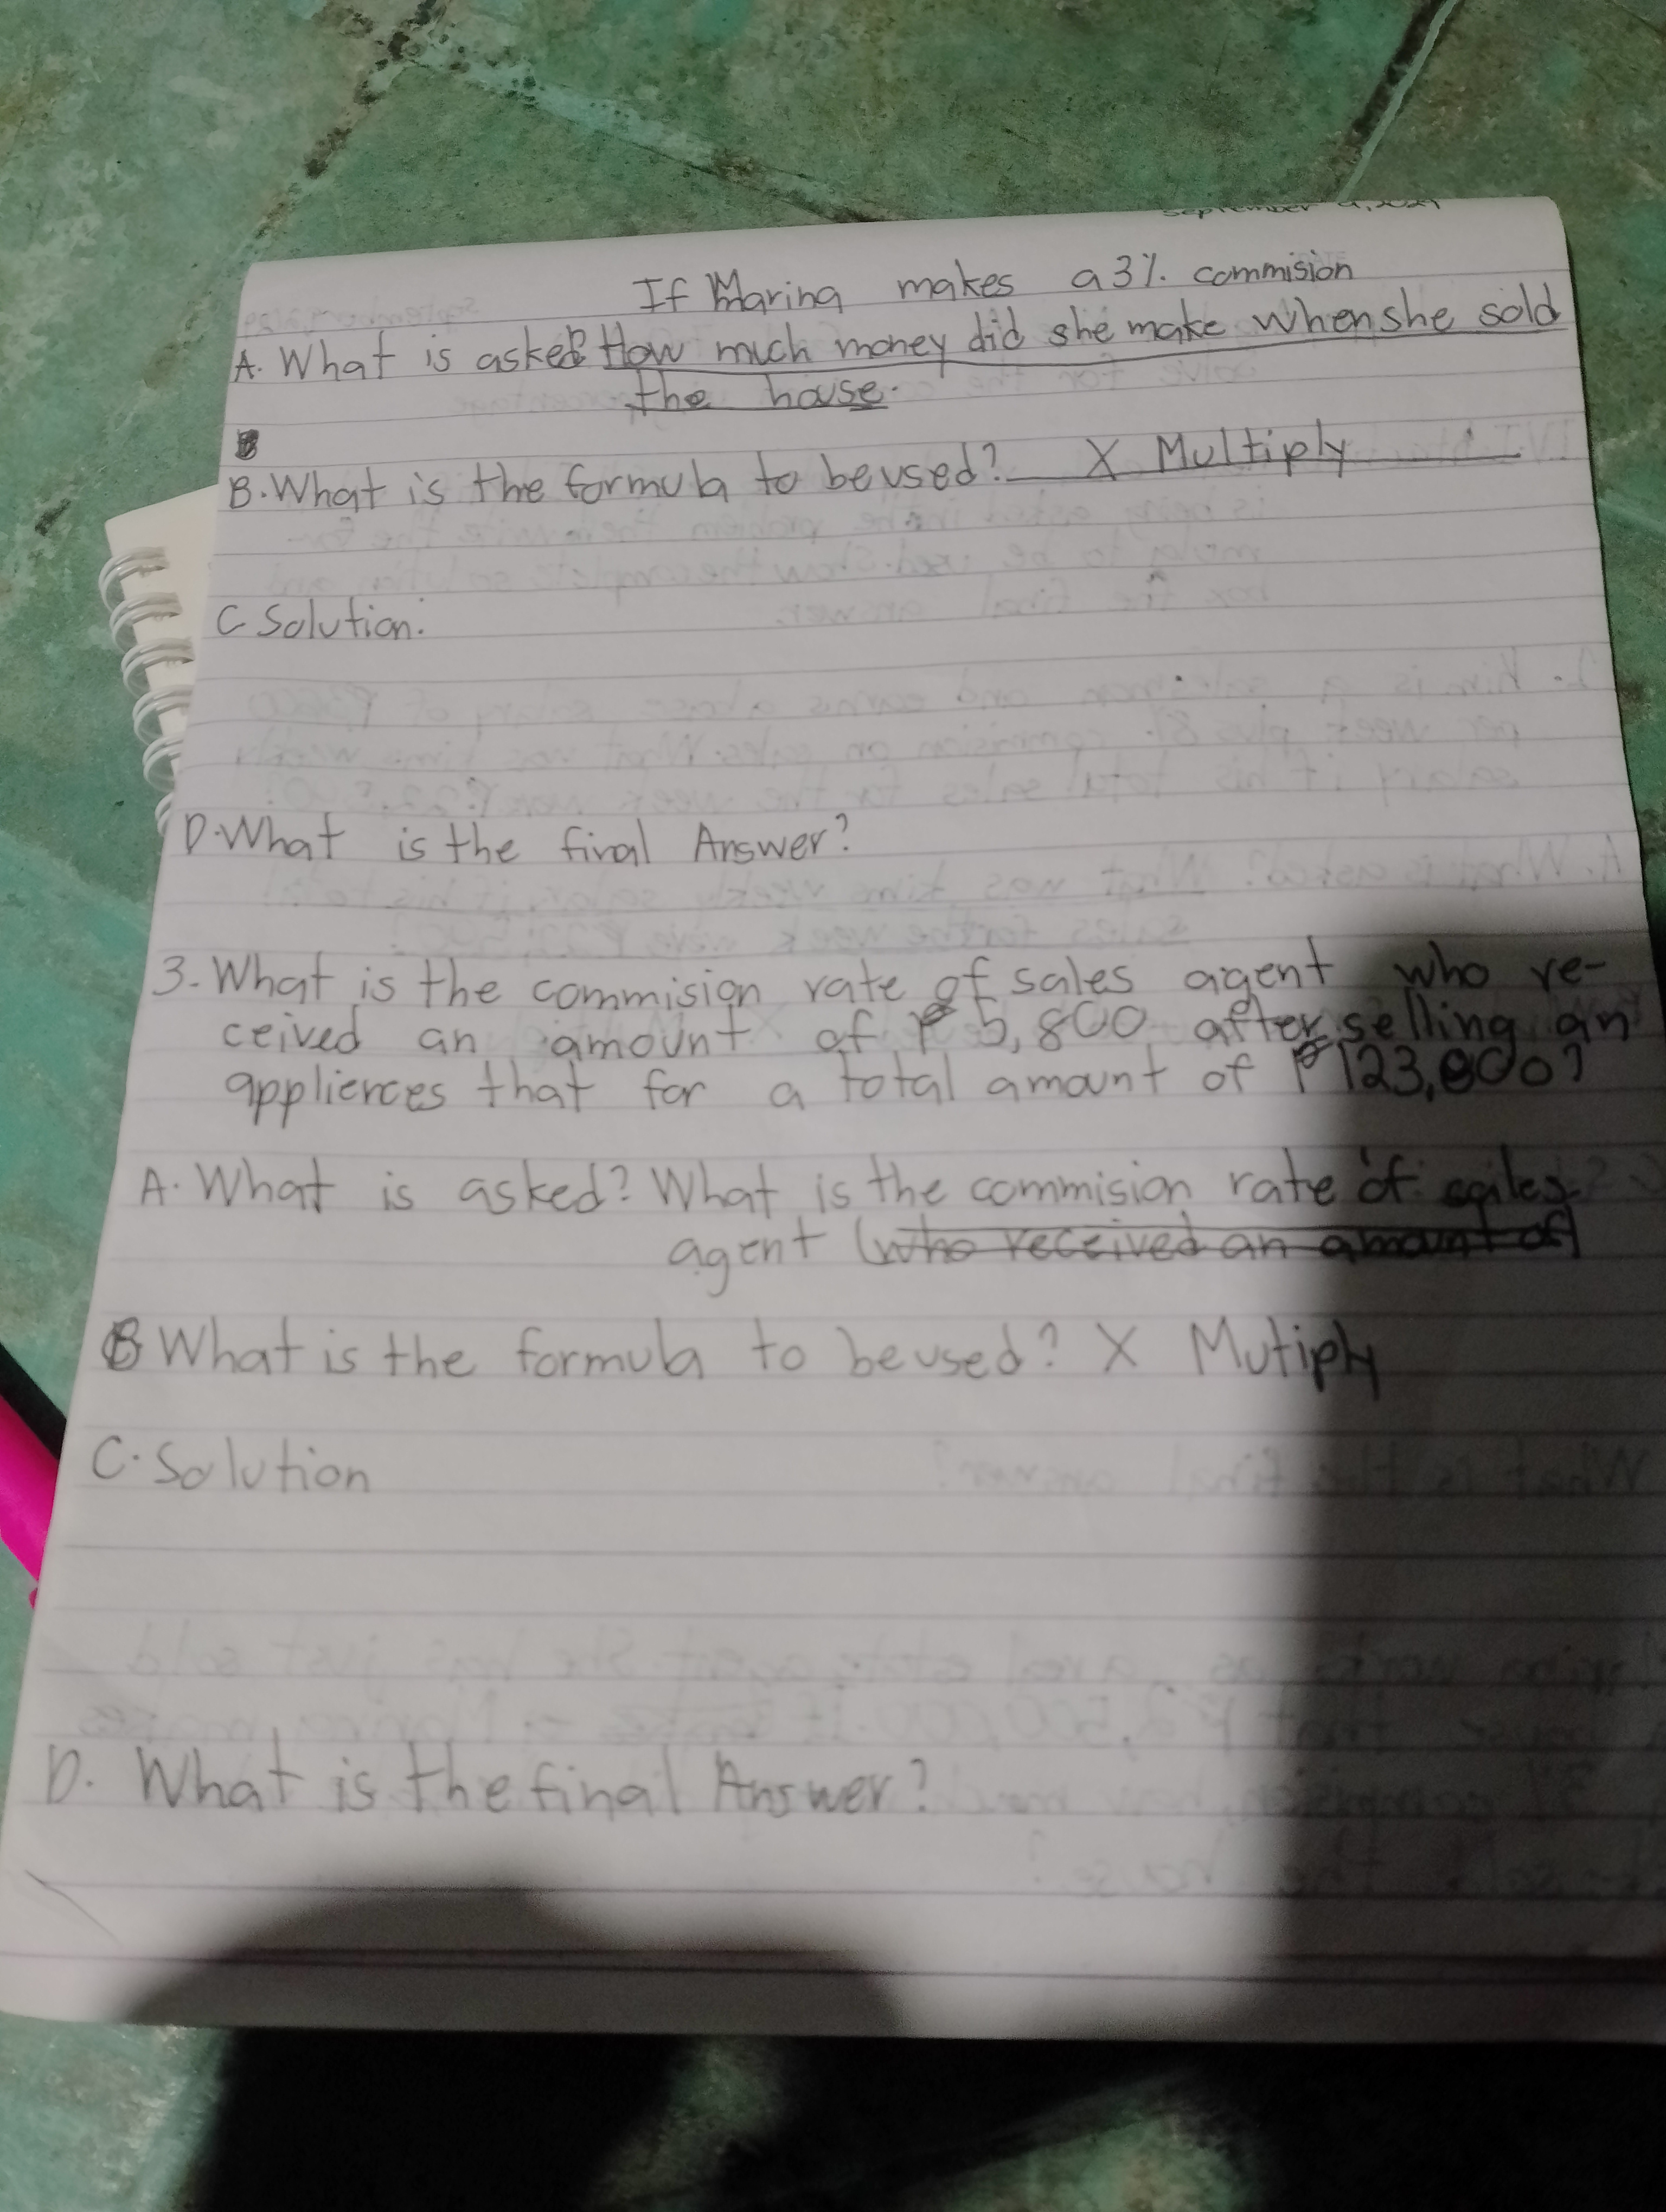 If Marina makes a 3% commision
A. What is asked? How much money did she make when she sold
the house.
B. What is the formula to be used? X Multiply
C Solution:
D. What is the final Answer?
3. What is the commision rate of sales agent who re-
ceived an amount of ₱ 5,800 after selling an
applierces that for a total amount of ₱123,000?
A. What is asked? What is the commision rate of sales
agent (who received an amount of)
B What is the formula to be used? X Mutiply
C. Solution
D. What is the final Answer?